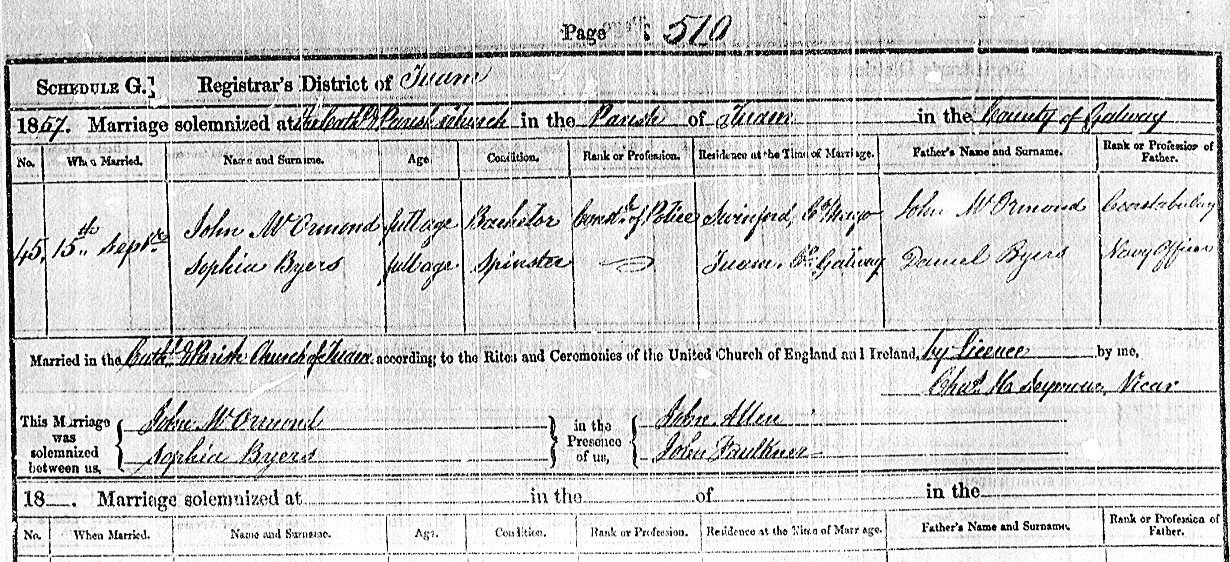 Page 510
SCHEDULE G.] Registrar's District of Tuam
1857. Marriage solemnized at the Cath.l & Parish Church in the Parish of Tuam in the County of Galway
No. When Married. Name and Surname. Age. Condition. Rank or Profession. Residence at the Time of Marriage. Father's Name and Surname. Rank or Profession of Father.
45. 15th Sept. John McOrmond full age Bachelor Const. of Police Swinford, Co. Mayo John McOrmond Constabulary
Sophia Byers full age Spinster Tuam, Co. Galway Daniel Byers Navy Officer
Married in the Cath.l & Parish Church of Tuam according to the Rites and Ceremonies of the United Church of England and Ireland, by Licence by me,
Chas. H. Seymour, Vicar
This Marriage was solemnized between us, { John McOrmond } in the Presence of us, { John Allen
Sophia Byers John Faulkner
18 . Marriage solemnized at in the of in the
No. When Married. Name and Surname. Age. Condition. Rank or Profession. Residence at the Time of Marriage. Father's Name and Surname. Rank or Profession of Father.